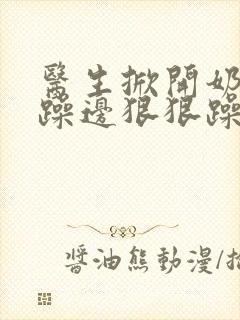 醫生掀開奶
躁邊狠狠躁
醬油熊動漫/